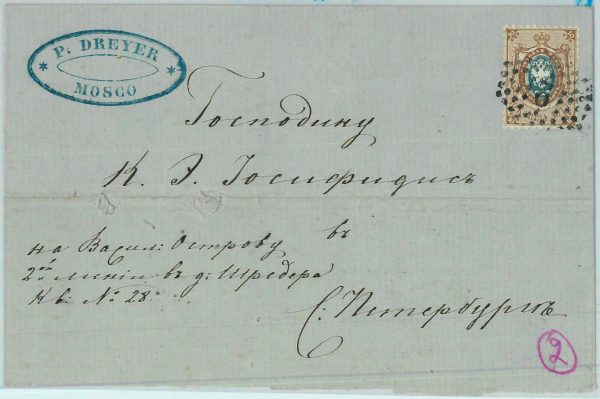 P. DREYER
MOSCO
Господину
К. Э. Іосифидисъ
въ
на Васил: Острову
2ой линіи въ д: Шредера
Кв: № 28.
С: Петербургъ
2